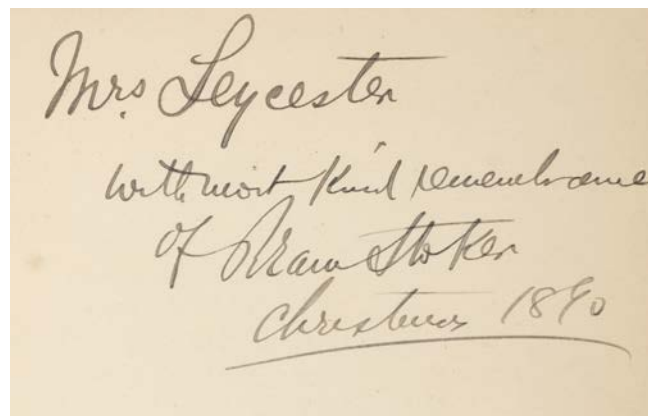 Mrs. Leycester
with most kind remembrance
of Bram Stoker
Christmas 1890